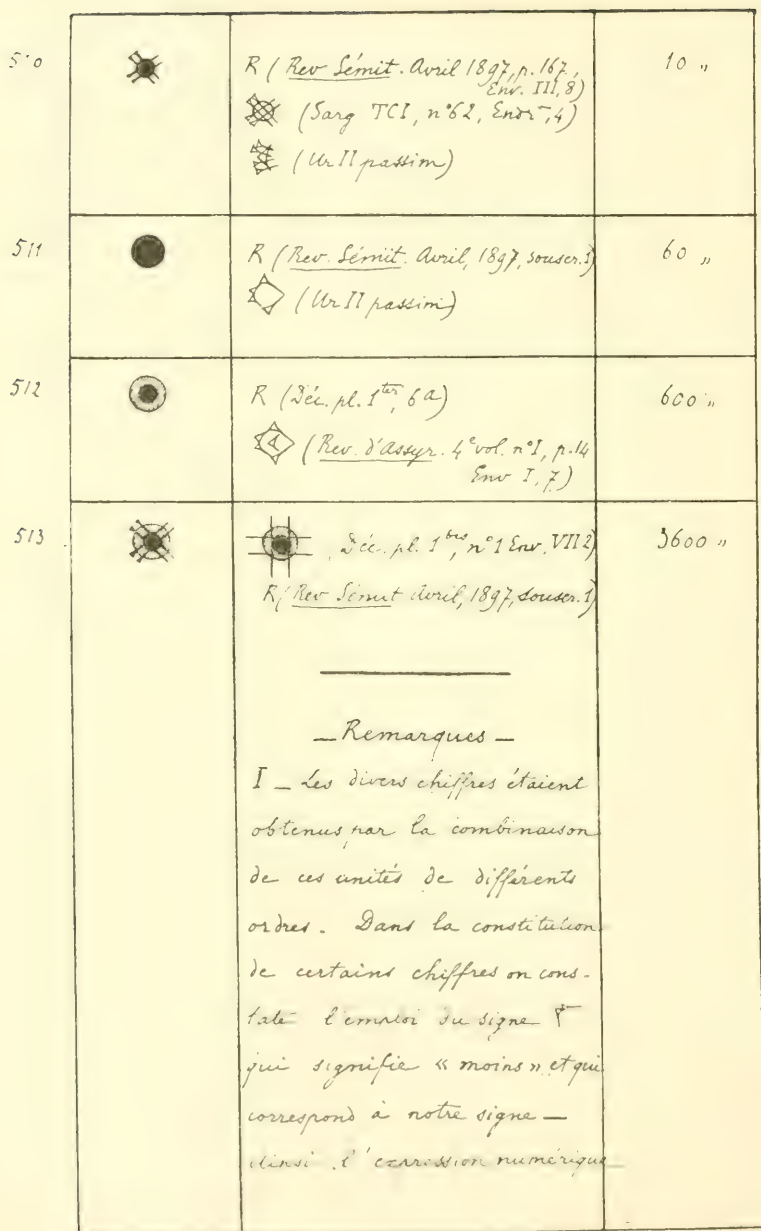 510
R (Rev Sémit. Avril 1897, p. 167,
Env. III, 8)
10 "
(Sarg TCI, n° 62, Endr, 4)
(Ur II passim)
511
R (Rev. Sémit. Avril, 1897, souscr. 1)
60 "
(Ur II passim)
512
R (Déc. pl. 1ter, 6a)
600 "
(Rev. d'Assyr. 4e vol. n° I, p. 14
Env I, 7)
513
Déc. pl. 1bis, n° 1 Env. VII 2)
3600 "
R (Rev Sémit Avril, 1897, souscr. 1)
— Remarques —
I — Les divers chiffres étaient
obtenus par la combinaison
de ces unités de différents
ordres. Dans la constitution
de certains chiffres on cons-
tate l'emploi du signe
qui signifie « moins » et qui
correspond à notre signe —
Ainsi l'expression numérique